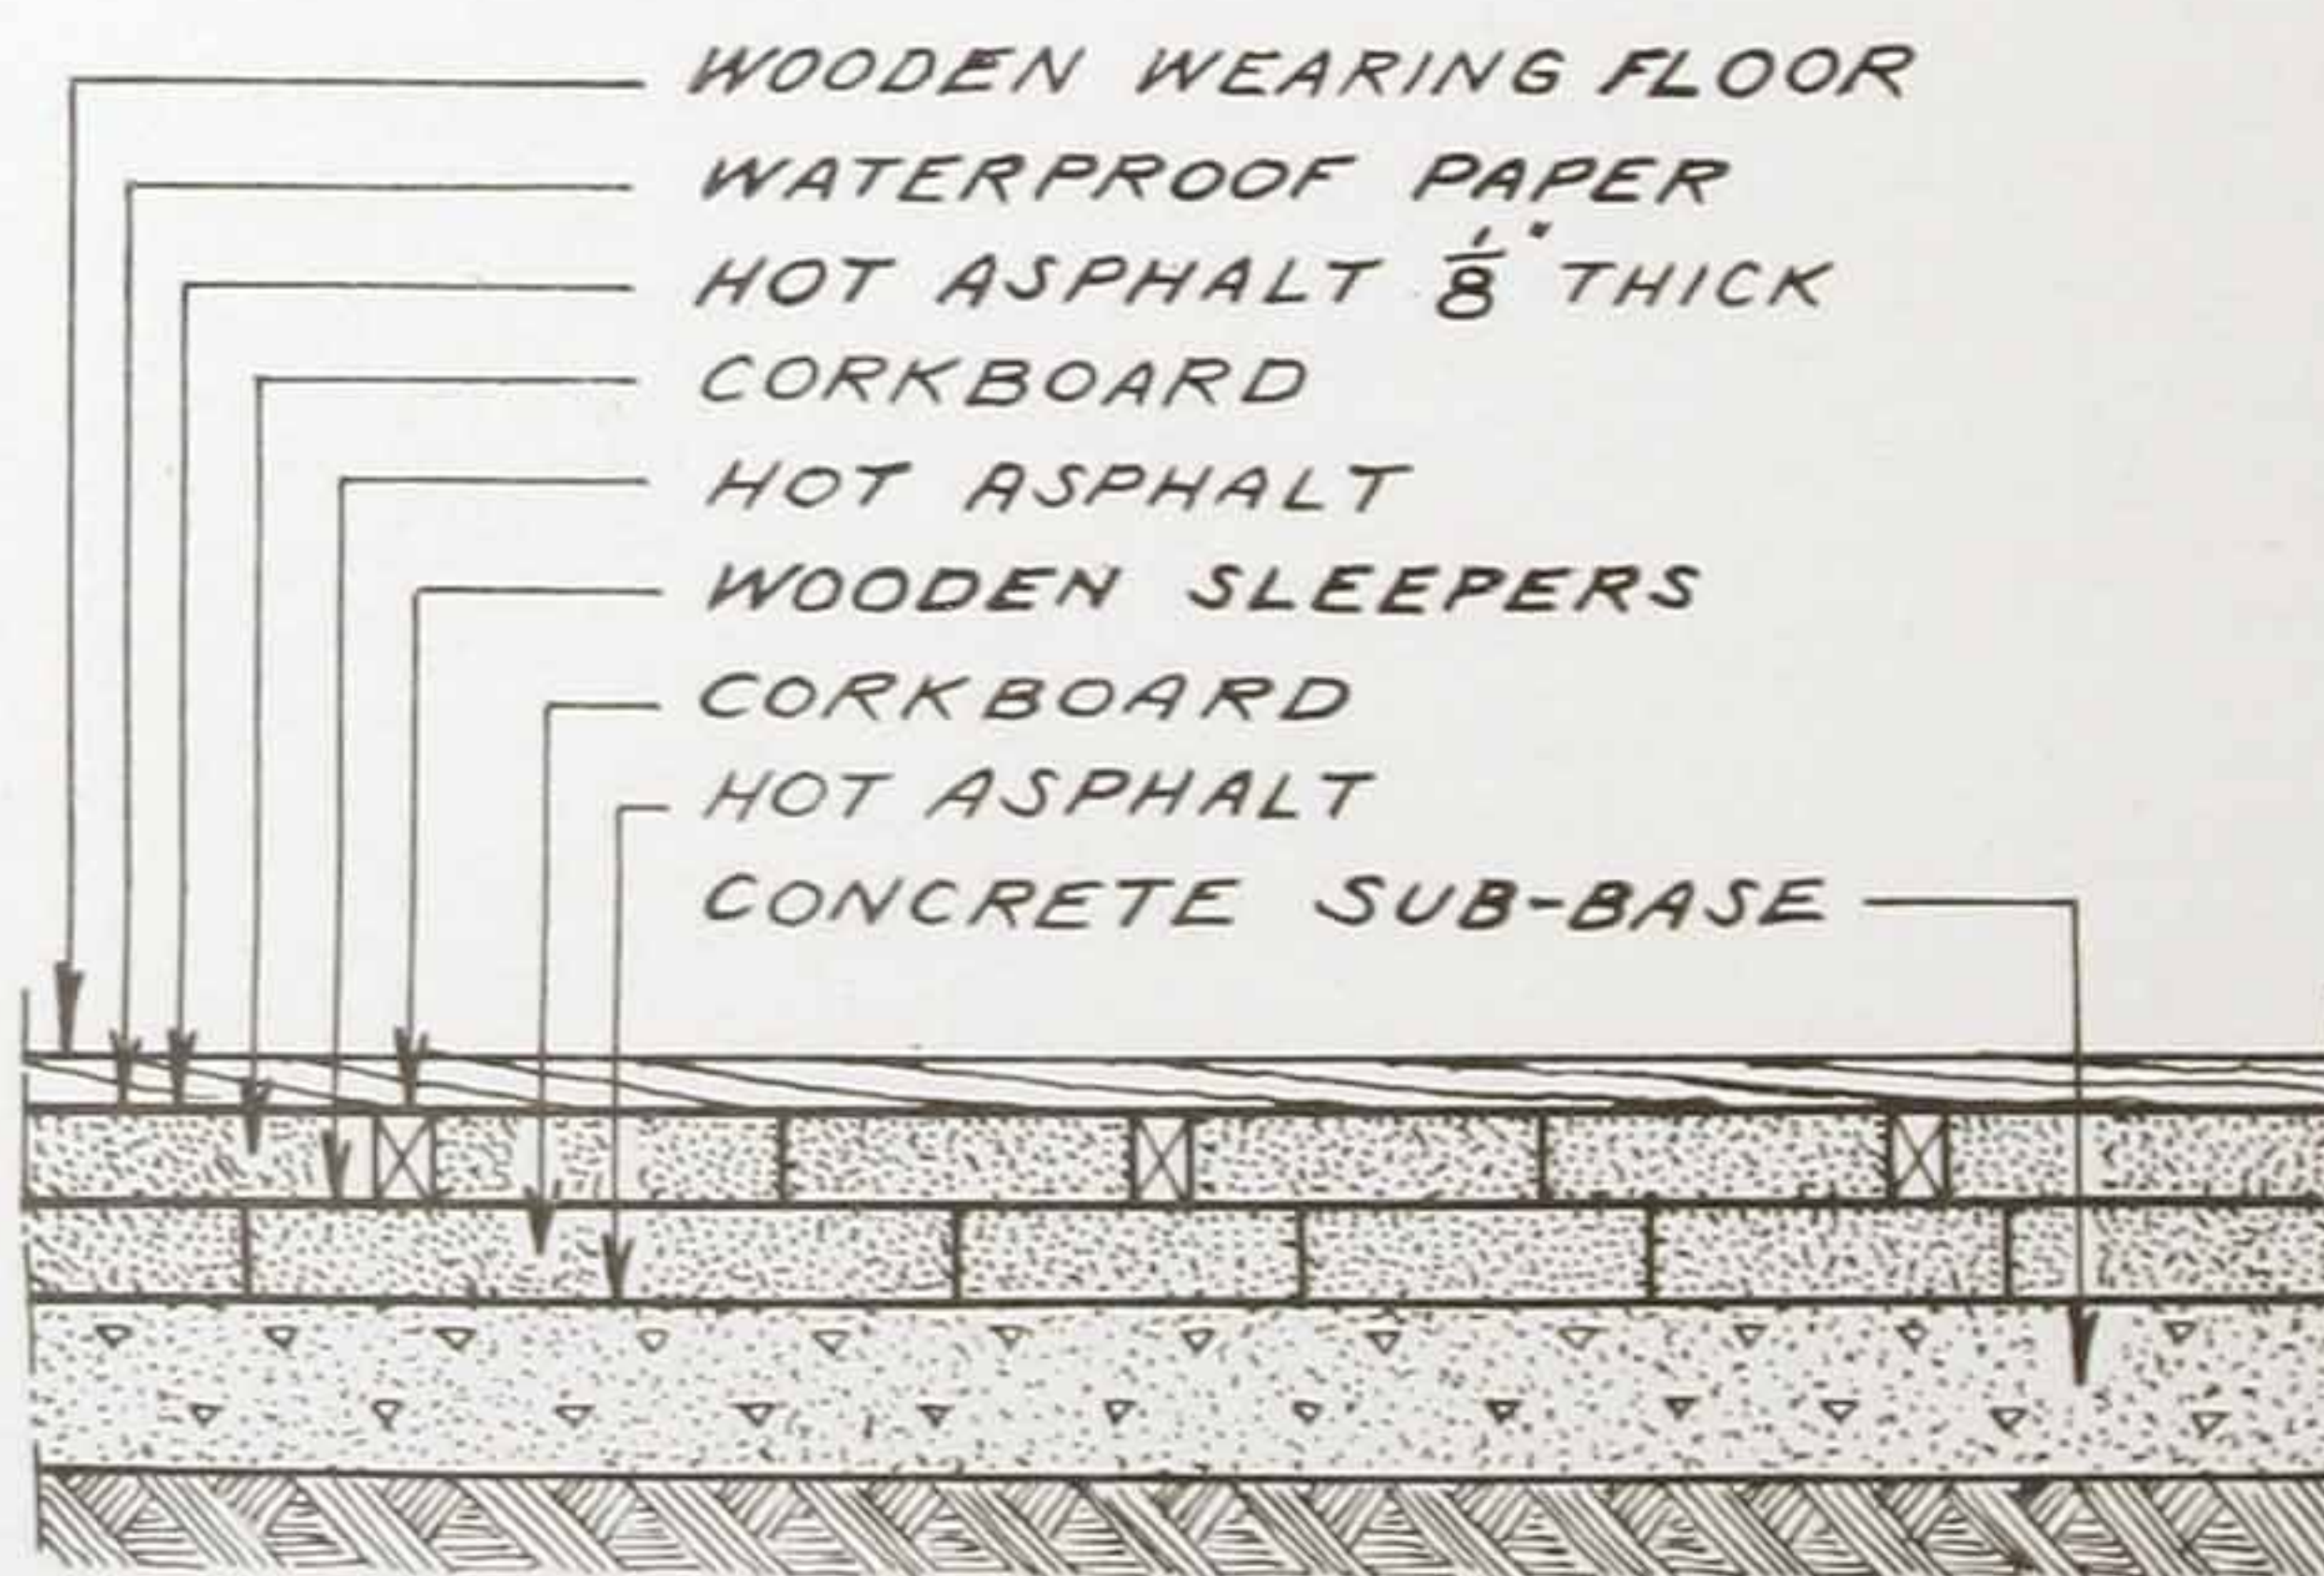 WOODEN WEARING FLOOR
WATERPROOF PAPER
HOT ASPHALT 1/8" THICK
CORKBOARD
HOT ASPHALT
WOODEN SLEEPERS
CORKBOARD
HOT ASPHALT
CONCRETE SUB-BASE